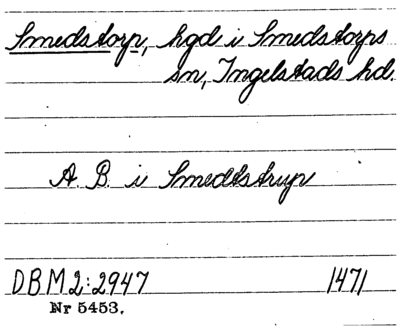 Smedstorp, hgd i Smedstorps
sn, Ingelstads hd.
A. B. i Smedtstrup
DBM2:2947 1471
Nr 5453.